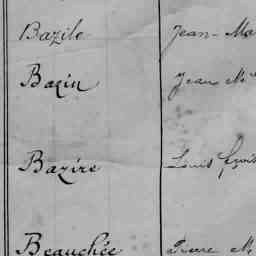 Bazile Jean-Ma
Bazin Jean M
Bazire Louis franç
Beauchée Pierre M